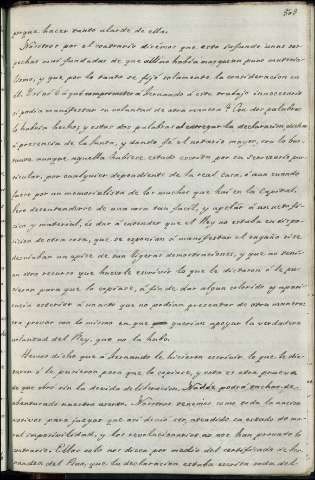 porque hacer tanto alarde de ella.
Nosotros por el contrario diremos que esto infunde unas sos-
pechas muy fundadas de que allí no habia mas que un puro materia-
lismo, y que por lo tanto se fijó solamente la consideracion en
él. Pero á qué comprometer á Fernando á este trabajo innecesario
si podia manifestar su voluntad de otra manera? Con dos palabras
lo habria hecho, y estas dos palabras al entregar la declaracion dicha
á presencia de la Junta, y dando fé el notario mayor, era lo bas-
tante aunque aquella hubiese estado escrita por su Secretario par-
ticular, por cualquier dependiente de la real casa, ó aun cuando
fuese por un memorialista de los muchos que hai en la Capital.
Pero desentenderse de una cosa tan facil, y apelar á un acto fí-
sico y material, es dar á entender que el Rey no estaba en dispo-
sicion de otra cosa, que se exponian á manifestar el engaño si se
desviaban un apice de sus ligeras demostraciones, y que no tenian
otro recurso que hacerle escribir lo que le dictaron ó le pu-
sieron para que lo copiase, á fin de dar algun colorido y apari-
encia exterior á un acto que no podian presentar de otra manera
sin probar con lo mismo en que querian apoyar la verdadera
voluntad del Rey, que no la hubo.
Hemos dicho que á Fernando le hicieron escribir lo que le dic-
taron ó le pusieron para que lo copiase, y esta es otra prueva
de que obró sin la devida deliberacion. Nadie podrá tachar de
aventurado nuestro aserto. Nosotros tenemos como toda la nacion
motivos para juzgar que así debió ser, atendido su estado de mo-
ral imposibilidad, y los revolucionarios no nos han provado lo
contrario. Ellos solo nos dicen por medio del certificado de Fer-
nandez del Pino, que la declaracion estaba escrita toda del